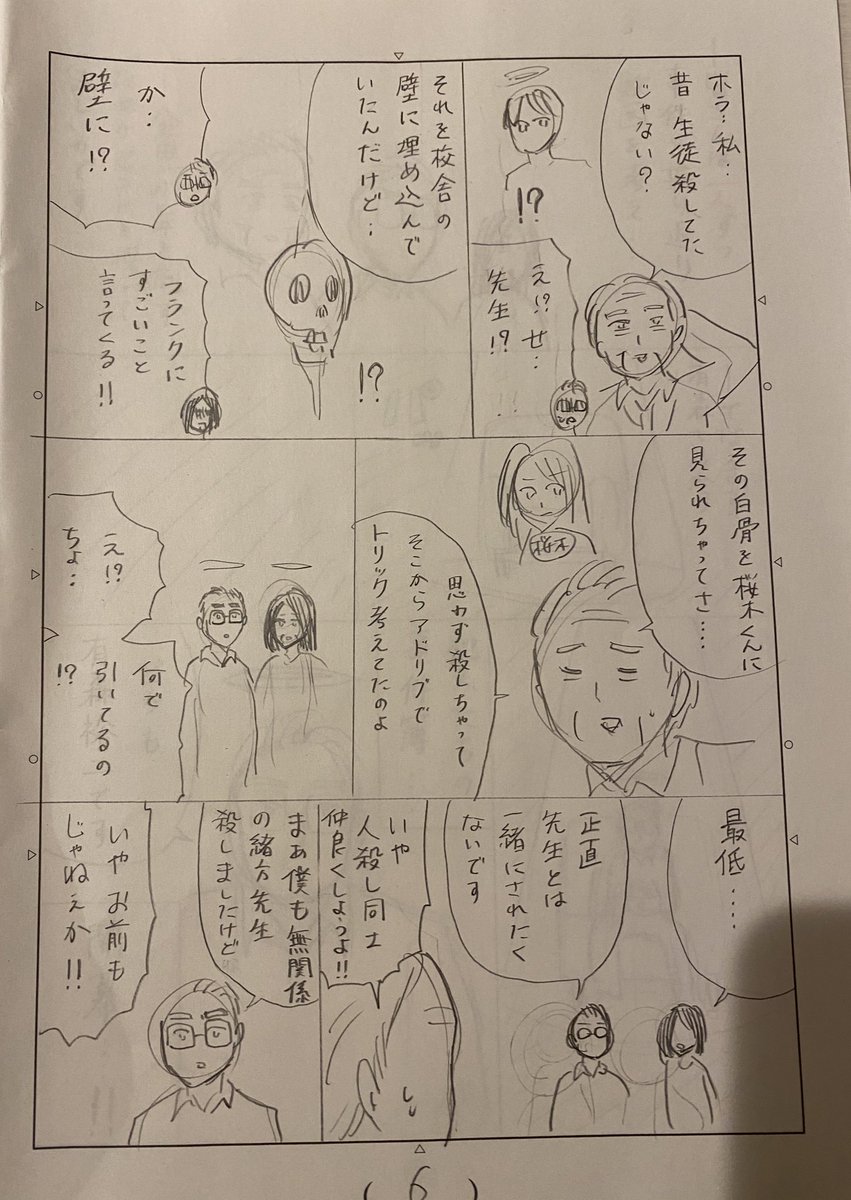 ホラ‥私‥
昔 生徒殺してた
じゃない?
!?
え!? せ‥
先生!?
それを校舎の
壁に埋め込んで
いたんだけど‥
!?
か‥
壁に!?
フランクに
すごいこと
言ってくる!!
その白骨を桜木くんに
見られちゃってさ‥‥
桜木
思わず殺しちゃって
そこからアドリブで
トリック考えてたのよ
え!?
ちょ‥
何で
引いてるの
!?
最低‥‥
正直
先生とは
一緒にされたく
ないです
いや
人殺し同士
仲良くしようよ!!
まぁ僕も無関係
の緒方先生
殺しましたけど
いやお前も
じゃねぇか!!
(6)